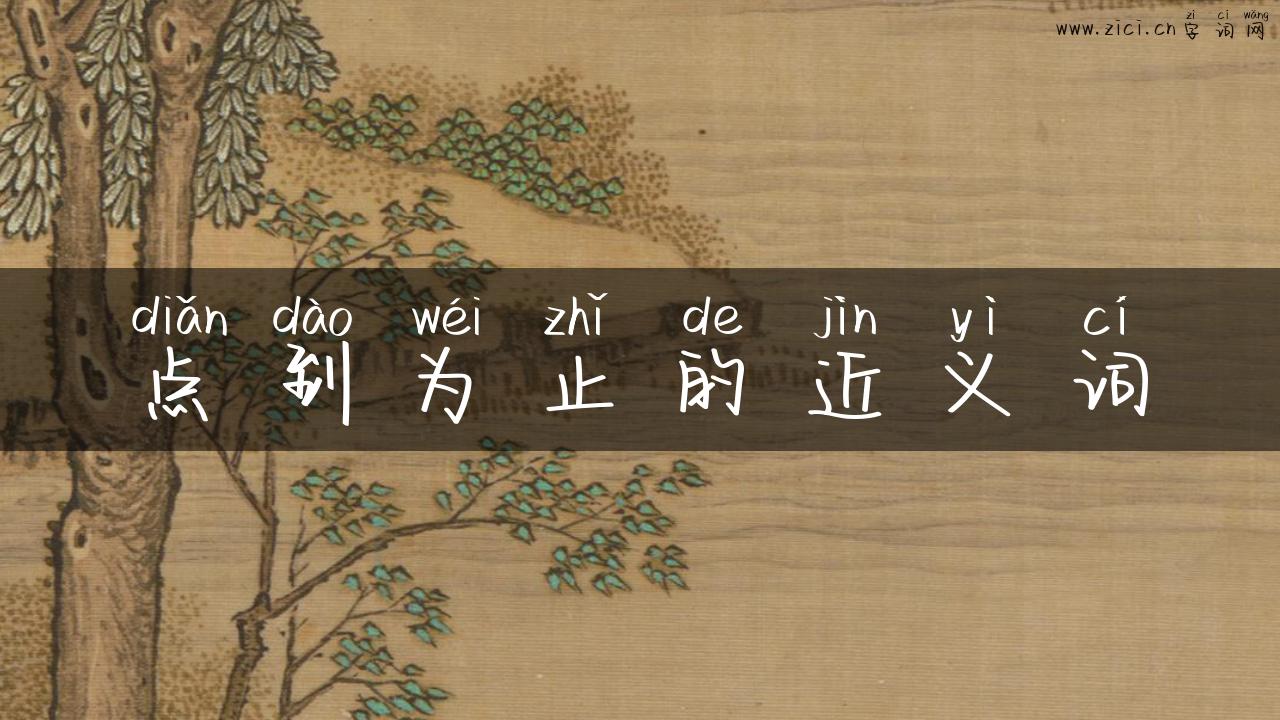 zì cí wǎng
www.zici.cn 字词网
diǎn dào wéi zhǐ de jìn yì cí
点到为止的近义词